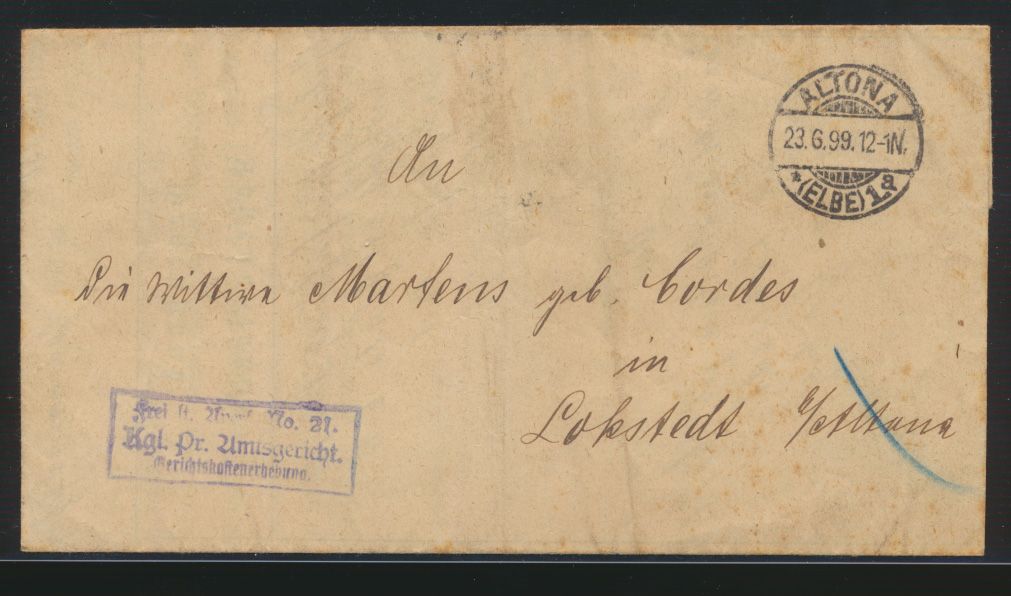 ALTONA
23.6.99.12-1N.
* (ELBE) 1a
An
die Wittwe Martens geb. Cordes
in
Lokstedt b/Altona
Frei lt. No. 21.
Kgl. Pr. Amtsgericht.
Gerichtskostenerhebung.